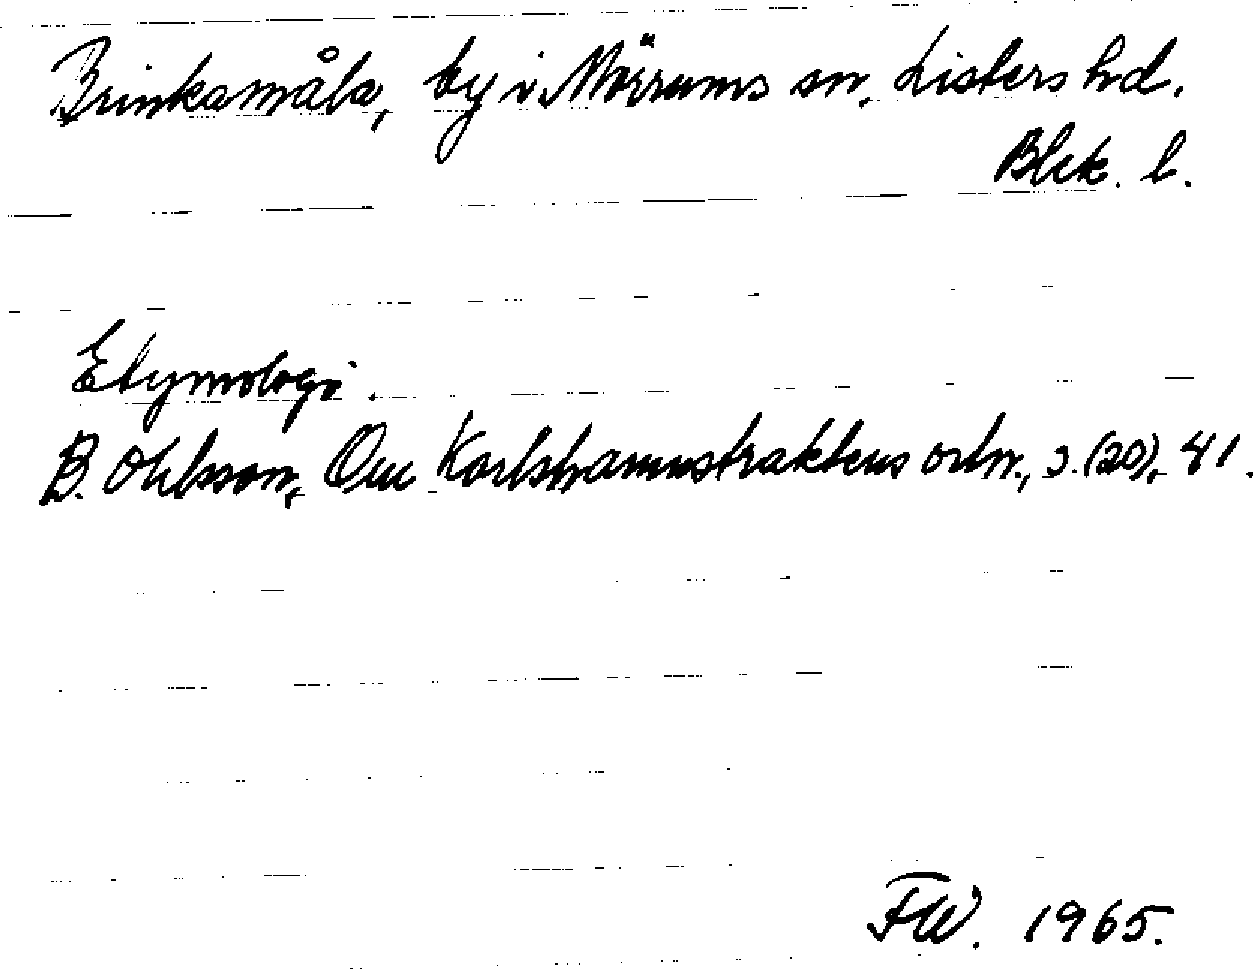 Brinkamåla, by i Mörrums sn, Listers hd.
Blek. l.
Etymologi.
B. Ohlsson, Om Karlshamnstraktens ortn., s. (20), 41.
FW. 1965.